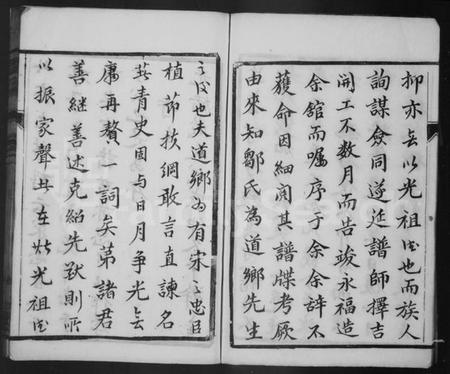 抑亦無以光祖德也而族人
詢謀僉同遂延譜師擇吉
開工不數月而告竣永福造
余舘而囑序于余余辭不
獲命因細閱其譜牒考厥
由來知鄒氏為道鄉先生
之後也夫道鄉為有宋之忠臣
植節扶綱敢言直諫名
共青史固与日月争光無
庸再贅一詞矣第諸君
善繼善述克紹先猷則所
以振家聲者在此光祖德